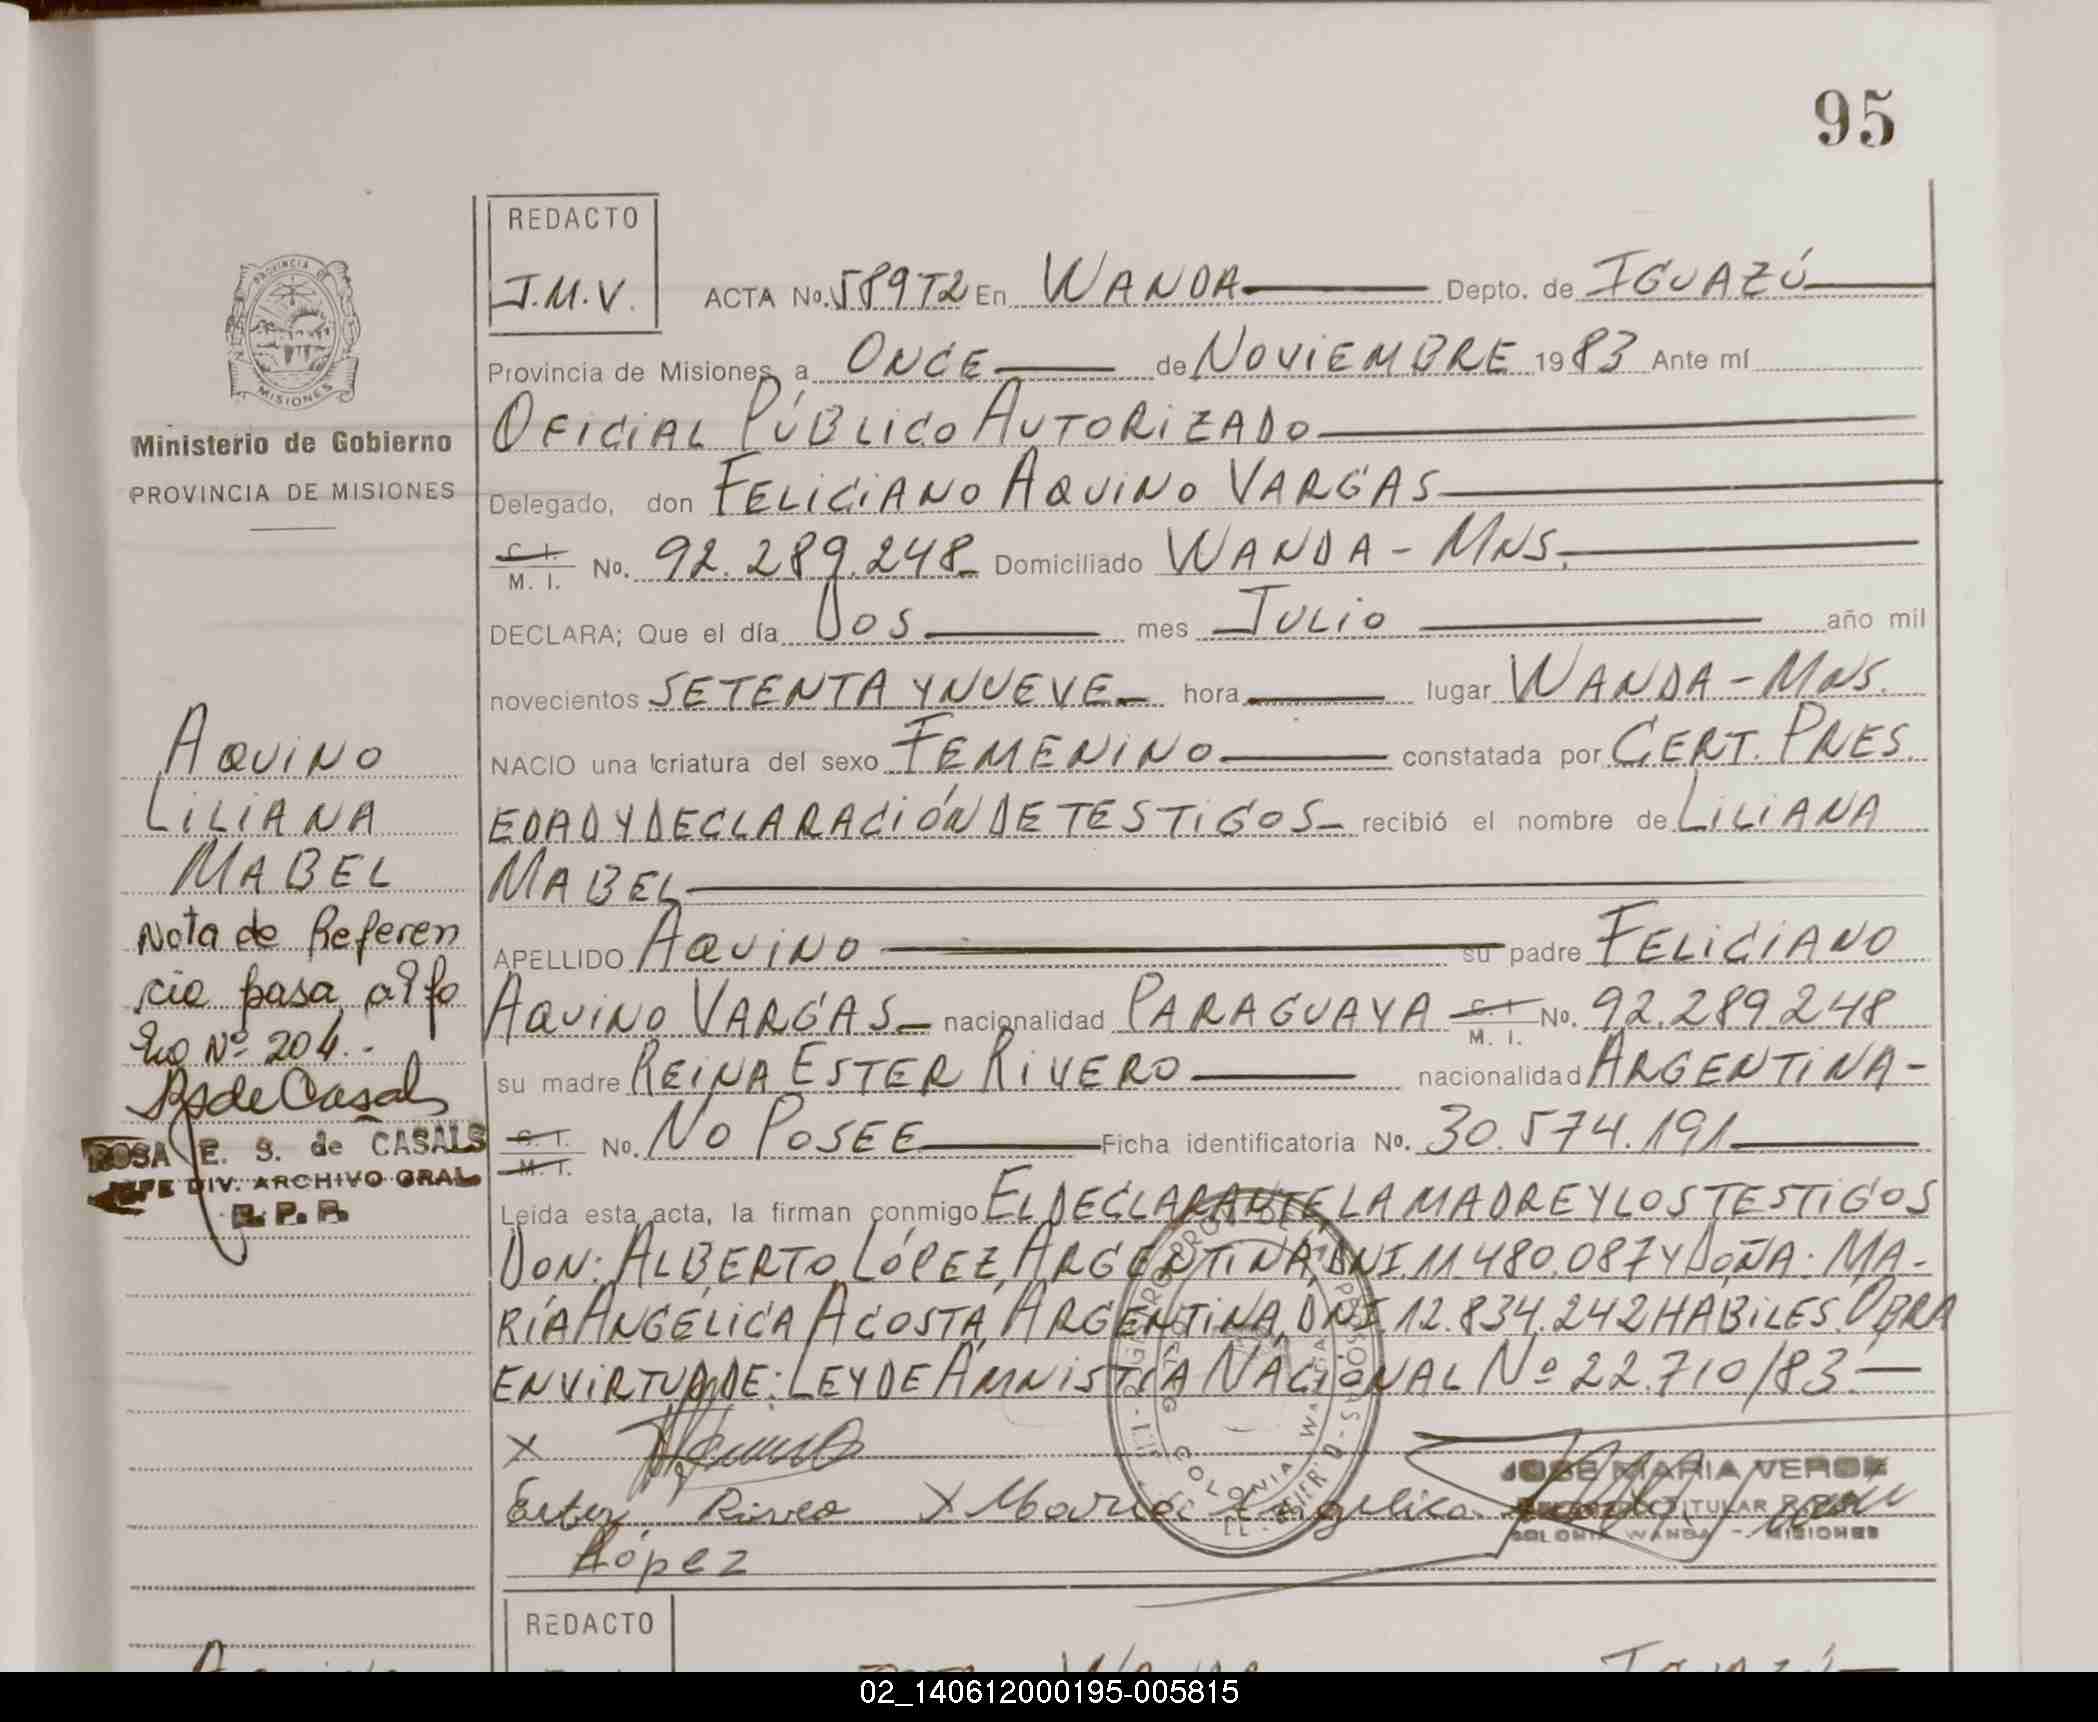 95
REDACTO
J.M.V.
ACTA No. 589T2 En WANDA Depto. de IGUAZÚ
Provincia de Misiones, a ONCE de NOVIEMBRE 1983 Ante mí
OFICIAL PÚBLICO AUTORIZADO
Delegado, don FELICIANO AQUINO VARGAS
C. I.
M. I. No. 92.289.248 Domiciliado WANDA - MNS.
DECLARA; Que el día DOS mes JULIO año mil
novecientos SETENTA Y NUEVE hora lugar WANDA - MNS.
NACIO una criatura del sexo FEMENINO constatada por CERT. PRES.
EDAD Y DECLARACIÓN DE TESTIGOS recibió el nombre de LILIANA
MABEL
APELLIDO AQUINO su padre FELICIANO
AQUINO VARGAS nacionalidad PARAGUAYA C. I. No. 92.289.248
M. I.
su madre REINA ESTER RIVERO nacionalidad ARGENTINA -
C. I.
M. I. No. NO POSEE Ficha identificatoria No. 30.574.191
Leída esta acta, la firman conmigo EL DECLARANTE, LA MADRE Y LOS TESTIGOS
DON: ALBERTO LÓPEZ, ARGENTINA, DNI. 11.480.087 Y DOÑA: MA-
RÍA ANGÉLICA ACOSTA, ARGENTINA, DNI. 12.834.242 HABILES. OBRA
EN VIRTUD DE: LEY DE AMNISTIA NACIONAL Nº 22.710/83.-
X
Ester Rivero X Maria Angelica
López
JOSE MARIA VERDE
TITULAR
COLONIA WANDA - MISIONES
COLONIA WANDA
PROVINCIA DE
MISIONES
Ministerio de Gobierno
PROVINCIA DE MISIONES
AQUINO
LILIANA
MABEL
Nota de Referen
cia pasa al fo
lio Nº 204.-
RSdeCasals
ROSA E. S. de CASALS
JEFE DIV. ARCHIVO GRAL
R. P. P.
REDACTO
02_140612000195-005815